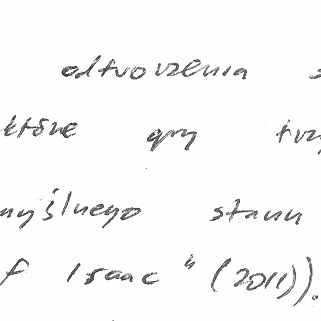 odtworzenia s
które gry trzy
myślnego stanu
f Isaac" (2011)).